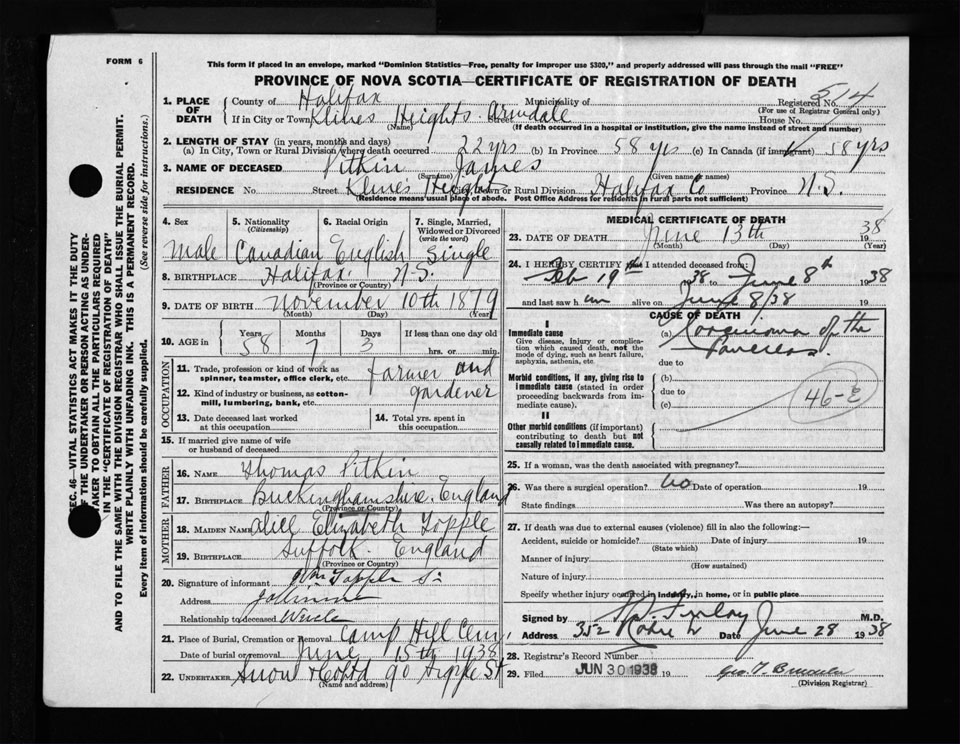 FORM 6
This form if placed in an envelope, marked "Dominion Statistics—Free, penalty for improper use $300," and properly addressed will pass through the mail "FREE"
PROVINCE OF NOVA SCOTIA—CERTIFICATE OF REGISTRATION OF DEATH
SEC. 46—VITAL STATISTICS ACT MAKES IT THE DUTY
OF THE UNDERTAKER OR PERSON ACTING AS UNDER-
TAKER TO OBTAIN ALL THE PARTICULARS REQUIRED
IN THE "CERTIFICATE OF REGISTRATION OF DEATH"
AND TO FILE THE SAME WITH THE DIVISION REGISTRAR WHO SHALL ISSUE THE BURIAL PERMIT.
WRITE PLAINLY WITH UNFADING INK. THIS IS A PERMANENT RECORD.
Every item of information should be carefully supplied. (See reverse side for instructions.)
1. PLACE OF DEATH
County of Halifax Municipality of Registered No. 514
(For use of Registrar General only)
If in City or Town Klines Heights Street Armdale House No.
(Name) (If death occurred in a hospital or institution, give the name instead of street and number)
2. LENGTH OF STAY (in years, months and days)
(a) In City, Town or Rural Division where death occurred 22 yrs (b) In Province 58 yrs (c) In Canada (if immigrant) 58 yrs
3. NAME OF DECEASED Pitkin James
(Surname) (Given name or names)
RESIDENCE No. Street Kline's Height City, Town or Rural Division Halifax Co Province N.S.
(Residence means usual place of abode. Post Office Address for residents in rural parts not sufficient)
4. Sex Male
5. Nationality (Citizenship) Canadian
6. Racial Origin English
7. Single, Married, Widowed or Divorced (write the word) Single
8. BIRTHPLACE Halifax N.S.
(Province or Country)
9. DATE OF BIRTH November 10th 1879
(Month) (Day) (Year)
10. AGE in Years 58 Months 7 Days 3 If less than one day old hrs. or min.
OCCUPATION
11. Trade, profession or kind of work as spinner, teamster, office clerk, etc. farmer and
12. Kind of industry or business, as cotton-mill, lumbering, bank, etc. gardener
13. Date deceased last worked at this occupation
14. Total yrs. spent in this occupation
15. If married give name of wife or husband of deceased
FATHER
16. NAME Thomas Pitkin
17. BIRTHPLACE Buckinghamshire. England
(Province or Country)
MOTHER
18. MAIDEN NAME Alice Elizabeth Topple
19. BIRTHPLACE Suffolk. England
(Province or Country)
20. Signature of informant Wm Topple Sr
Address
Relationship to deceased Uncle
21. Place of Burial, Cremation or Removal Camp Hill Cem.
Date of burial or removal June 15th 1938
22. UNDERTAKER Snow & Co Ltd 90 Argyle St
(Name and address)
MEDICAL CERTIFICATE OF DEATH
23. DATE OF DEATH June 13th 1938
(Month) (Day) (Year)
24. I HEREBY CERTIFY that I attended deceased from
Feb 19th 1938 to June 8th 1938
and last saw him alive on June 8/38 19
CAUSE OF DEATH
I
Immediate cause
Give disease, injury or complication which caused death, not the mode of dying, such as heart failure, asphyxia, asthenia, etc.
(a) Carcinoma of the
Pancreas.
due to
Morbid conditions, if any, giving rise to immediate cause (stated in order proceeding backwards from immediate cause).
(b)
due to
(c)
46-E
II
Other morbid conditions (if important) contributing to death but not causally related to immediate cause.
25. If a woman, was the death associated with pregnancy?
26. Was there a surgical operation? No Date of operation 19
State findings Was there an autopsy?
27. If death was due to external causes (violence) fill in also the following:—
Accident, suicide or homicide? Date of injury 19
(State which)
Manner of injury
(How sustained)
Nature of injury
Specify whether injury occurred in industry, in home, or in public place
Signed by Finlay M.D.
Address 352 Robie St Date June 28 1938
28. Registrar's Record Number
29. Filed JUN 30 1938 19
(Division Registrar)